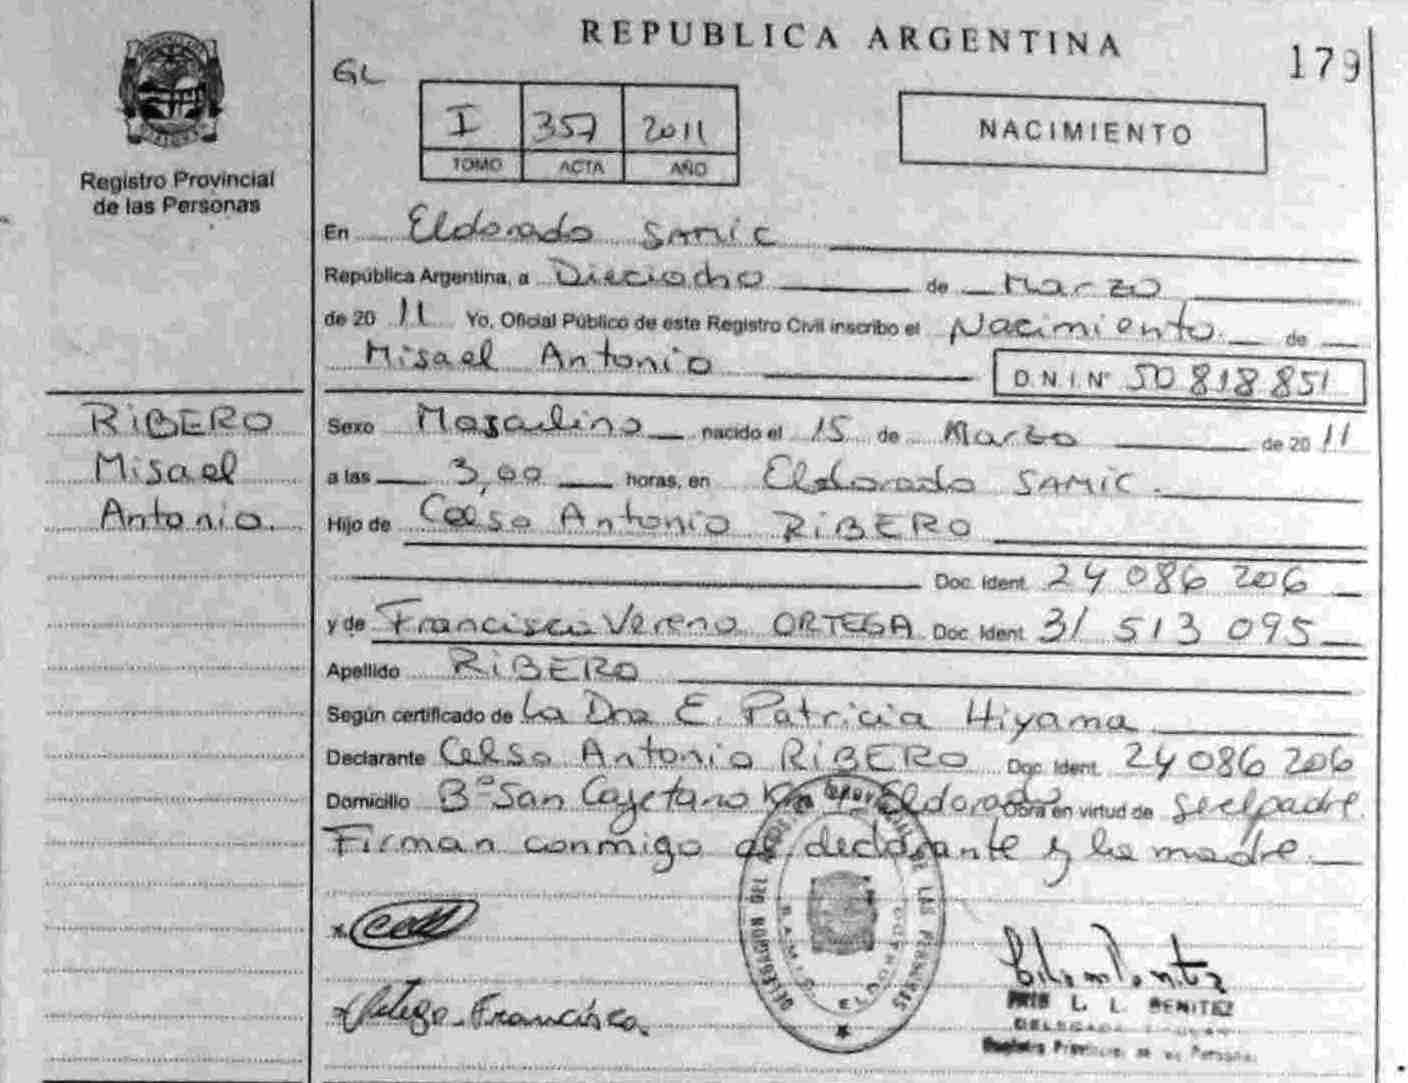 REPUBLICA ARGENTINA
179
GL
I 357 2011
TOMO ACTA AÑO
NACIMIENTO
Registro Provincial
de las Personas
En Eldorado SAMIC
República Argentina, a Dieciocho de Marzo
de 2011 Yo, Oficial Público de este Registro Civil inscribo el Nacimiento de
Misael Antonio D N I Nº 50 818 851
RIBERO
Misael
Antonio.
Sexo Masculino nacido el 15 de Marzo de 2011
a las 3,00 horas, en Eldorado SAMIC.
Hijo de Celso Antonio RIBERO
Doc. Ident. 24 086 206
y de Francisca Vereno ORTEGA Doc. Ident. 31 513 095
Apellido RIBERO
Según certificado de La Dra E. Patricia Hiyama
Declarante Celso Antonio RIBERO Doc. Ident. 24 086 206
Domicilio Bº San Cayetano Eldorado Obra en virtud de ser el padre.
Firman conmigo el declarante y la madre.
DELEGACION DEL LAS PERSONAS
SAMIC ELDORADO
Ortega Francisca
L. L. BENITEZ
DELEGADA
Registro Provincial de las Personas